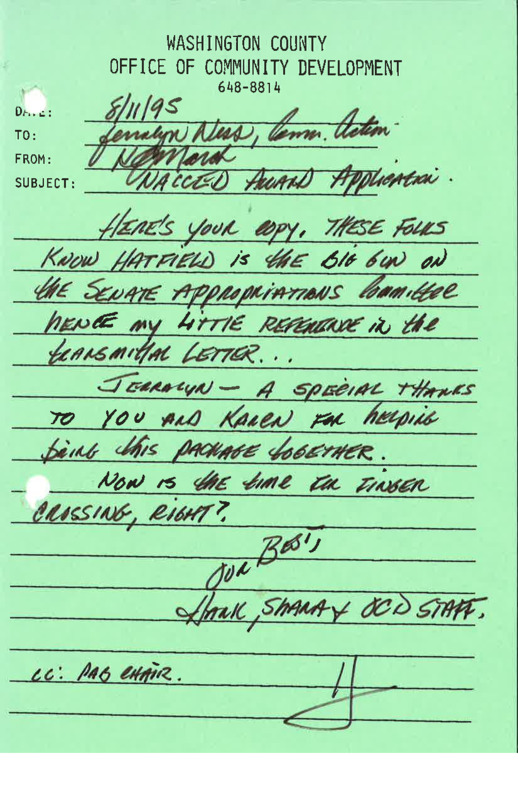 WASHINGTON COUNTY
OFFICE OF COMMUNITY DEVELOPMENT
648-8814
DATE: 8/11/95
TO: Jerralyn Ness, Comm. Action
FROM:
SUBJECT: NACCED AWARD APPLICATION.
HERE'S YOUR COPY. THESE FOLKS
KNOW HATFIELD IS THE BIG GUN ON
THE SENATE APPROPRIATIONS COMMITTEE
HENCE MY LITTLE REFERENCE IN THE
TRANSMITTAL LETTER...
JERRALYN — A SPECIAL THANKS
TO YOU AND KAREN FOR HELPING
BRING THIS PACKAGE TOGETHER.
NOW IS THE TIME FOR FINGER
CROSSING, RIGHT?
OUR BEST,
HANK, SHANA & OCD STAFF.
CC: PAB CHAIR.